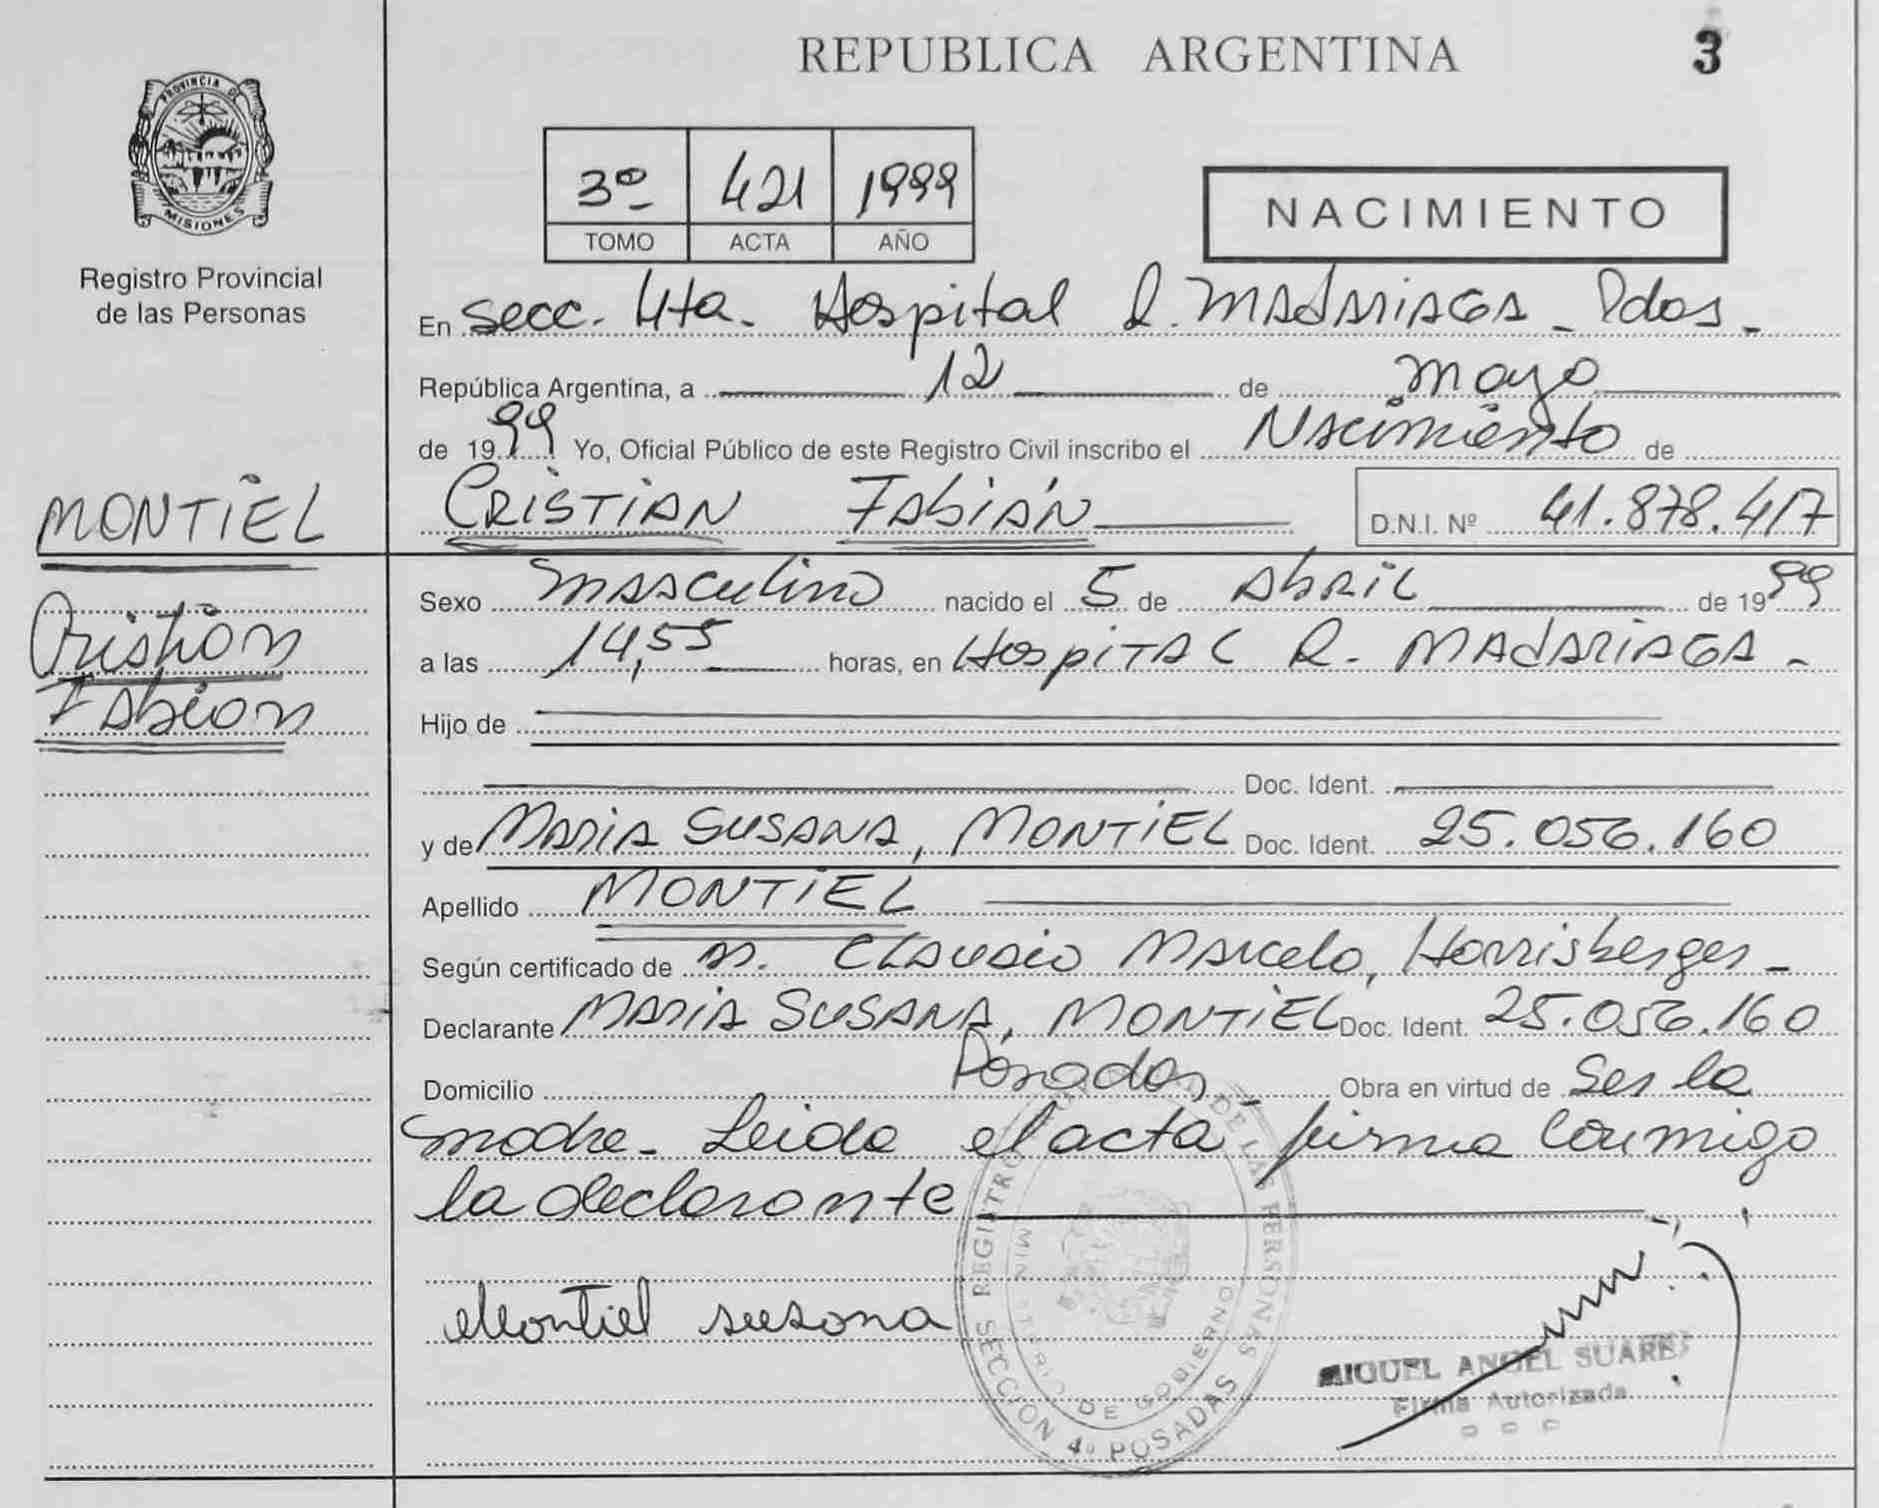 REPUBLICA ARGENTINA
3
PROVINCIA DE
MISIONES
Registro Provincial
de las Personas
3º 421 1999
TOMO ACTA AÑO
NACIMIENTO
En Secc. 4ta. Hospital R. MADARIAGA - Pdas -
República Argentina, a 12 de mayo
de 1999 Yo, Oficial Público de este Registro Civil inscribo el Nacimiento de
CRISTIAN FABIÁN
D.N.I. Nº 41.878.417
MONTIEL
Cristian
Fabian
Sexo masculino nacido el 5 de Abril de 1999
a las 14,55 horas, en Hospital R. MADARIAGA -
Hijo de
Doc. Ident.
y de MARIA SUSANA, MONTIEL Doc. Ident. 25.056.160
Apellido MONTIEL
Según certificado de CLAUDIO Marcelo, Horrisberger -
Declarante MARIA SUSANA, MONTIEL Doc. Ident. 25.056.160
Domicilio Posadas Obra en virtud de Ser la
madre - Leida el acta firma conmigo
la declarante
Montiel susana
REGISTRO DE LAS PERSONAS
MINISTERIO DE GOBIERNO
SECCION 4º POSADAS
MIGUEL ANGEL SUAREZ
Firma Autorizada